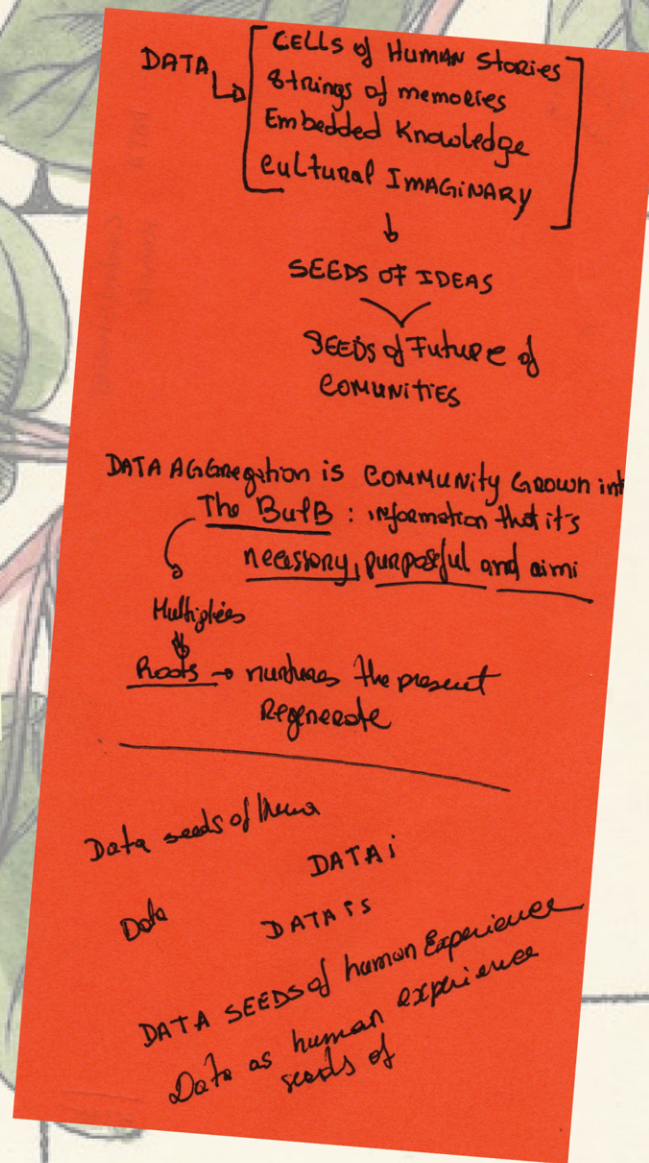 DATA
CELLS of HUMAN Stories
Strings of memories
Embedded Knowledge
Cultural IMAGINARY
SEEDS OF IDEAS
SEEDS of Future of
COMUNITIES
DATA AGGregation is COMMUNITY GROWN int
The BulB : information that it's
necessary, purposeful and aimi
Multiplies
Roots → nurtures the present
Regenerate
Data seeds of huma
DATA i
Data
DATA is
DATA SEEDS of human Experience
Data as human experience
seeds of